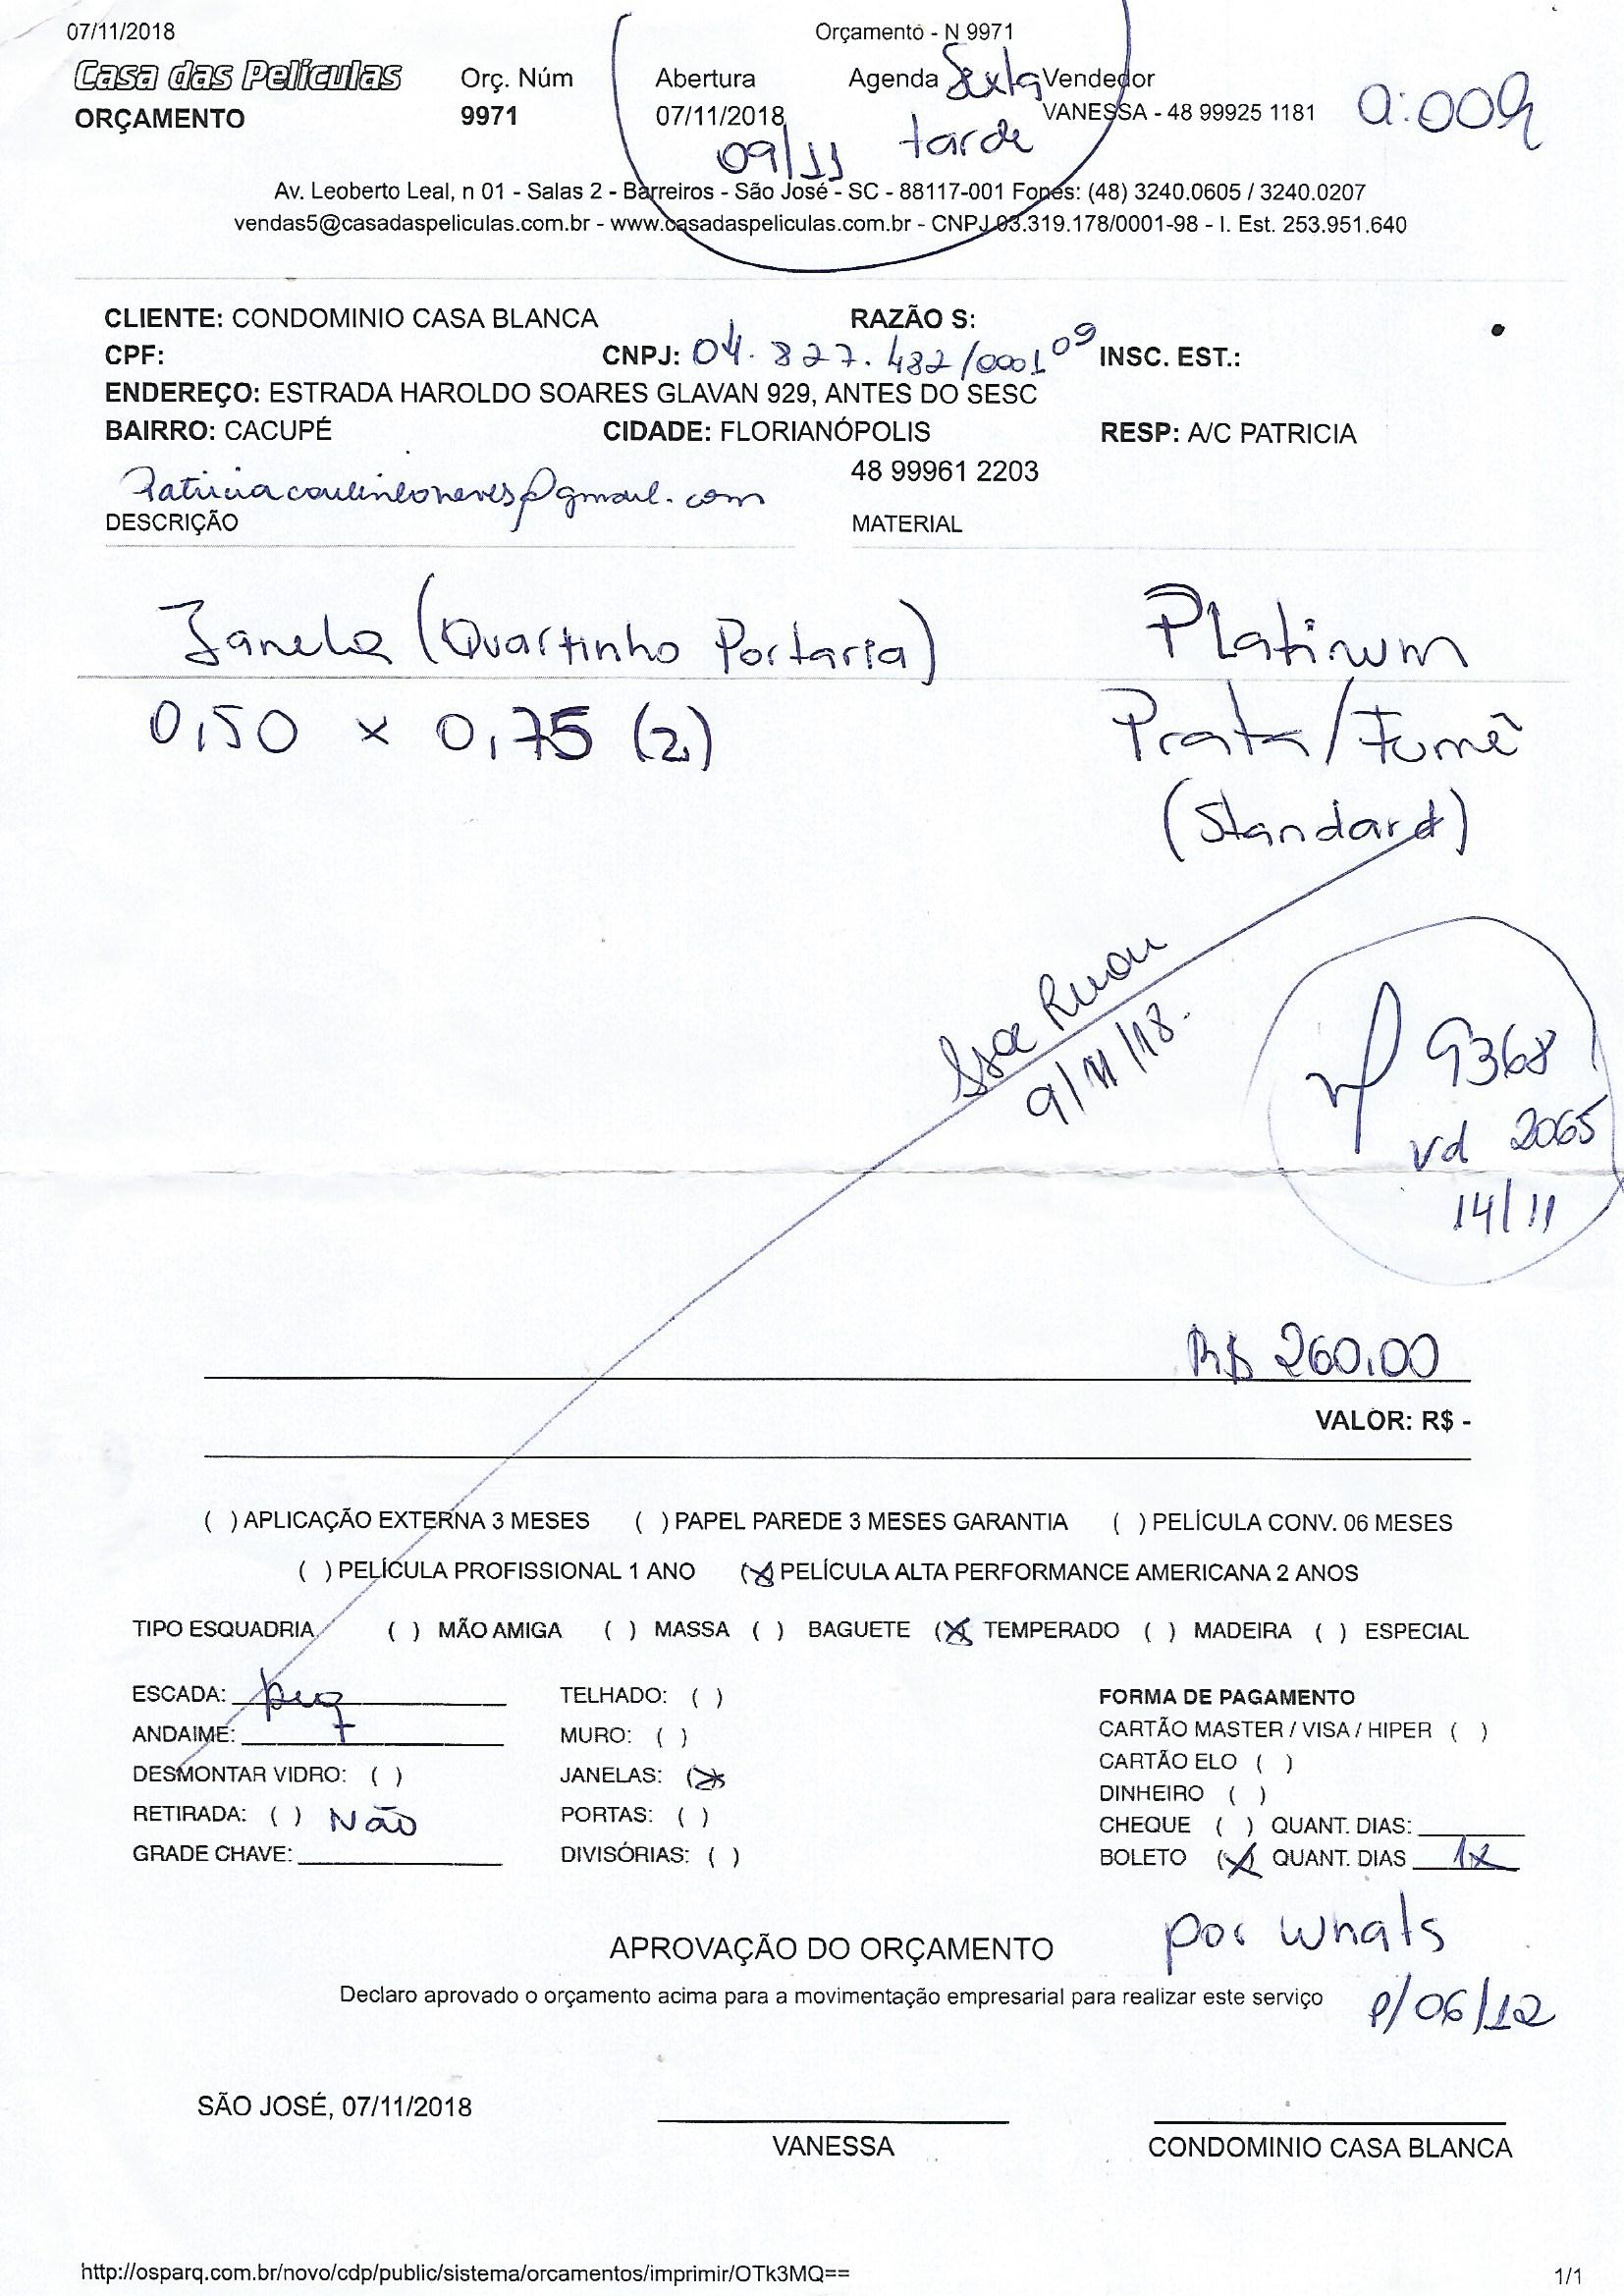 07/11/2018 Orçamento - N 9971
Casa das Películas Orç. Núm Abertura Agenda Sexta Vendedor
ORÇAMENTO 9971 07/11/2018 tarde VANESSA - 48 99925 1181
09/11
Av. Leoberto Leal, n 01 - Salas 2 - Barreiros - São José - SC - 88117-001 Fones: (48) 3240.0605 / 3240.0207
vendas5@casadaspeliculas.com.br - www.casadaspeliculas.com.br - CNPJ 03.319.178/0001-98 - I. Est. 253.951.640
CLIENTE: CONDOMINIO CASA BLANCA RAZÃO S:
CPF: CNPJ: 04.827.482/0001 09 INSC. EST.:
ENDEREÇO: ESTRADA HAROLDO SOARES GLAVAN 929, ANTES DO SESC
BAIRRO: CACUPÉ CIDADE: FLORIANÓPOLIS RESP: A/C PATRICIA
48 99961 2203
DESCRIÇÃO MATERIAL
Janela (Quartinho Portaria) Platinum
0,50 x 0,75 (2) Prata/Fumê
(Standard)
Ruan
9/11/18.
nf 9368
vd 2065
14/11
R$ 260,00
VALOR: R$ -
( ) APLICAÇÃO EXTERNA 3 MESES ( ) PAPEL PAREDE 3 MESES GARANTIA ( ) PELÍCULA CONV. 06 MESES
( ) PELÍCULA PROFISSIONAL 1 ANO (X) PELÍCULA ALTA PERFORMANCE AMERICANA 2 ANOS
TIPO ESQUADRIA ( ) MÃO AMIGA ( ) MASSA ( ) BAGUETE (X) TEMPERADO ( ) MADEIRA ( ) ESPECIAL
ESCADA: peq TELHADO: ( ) FORMA DE PAGAMENTO
ANDAIME: MURO: ( ) CARTÃO MASTER / VISA / HIPER ( )
DESMONTAR VIDRO: ( ) JANELAS: (X) CARTÃO ELO ( )
RETIRADA: ( ) Não PORTAS: ( ) DINHEIRO ( )
CHEQUE ( ) QUANT. DIAS:
GRADE CHAVE: DIVISÓRIAS: ( ) BOLETO (X) QUANT. DIAS 1x
APROVAÇÃO DO ORÇAMENTO por Whats
Declaro aprovado o orçamento acima para a movimentação empresarial para realizar este serviço p/06/12
SÃO JOSÉ, 07/11/2018
VANESSA CONDOMINIO CASA BLANCA
http://osparq.com.br/novo/cdp/public/sistema/orcamentos/imprimir/OTk3MQ== 1/1